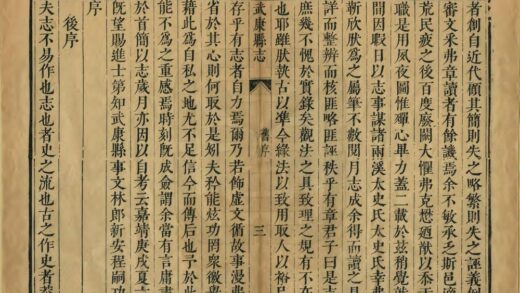 者創自近代顧其簡則失之略繁則失之誣義
審文釆弗章讀者有餘譏焉余不敏承乏斯邑
荒民疲之後百度廢闕大懼弗克懋迺猷以忝于
職是用夙夜圖惟殫心畢力蓋二載於茲稍覺就
間因暇日以志事謀諸兩溪太史氏太史氏幸弗
新欣肰爲之屬筆不數閱月志成余得而讀之見
詳而整辨而核匪略匪誣秩乎有章君子曰是志
庶幾不愧於實錄矣觀法之具致理之規有不在
也耶雖肰執古以凖今緣法以致用取人以裕
武康縣志
舊序
三
存乎有志者自力焉爾乃若飾虛文循故事漫弗
省於其心則何取於是矧夫矜能炫功罔衆徼
藉此爲自私之地尤不足信今而傳後也予於此
能不爲之重感焉時刻旣成僉謂余當有言庸書
於首簡以志歲月亦因以自考云嘉靖庚戌夏
旣望賜進士第知武康縣事文林郎新安程嗣功
序
後序
夫志不易作也志也者史之流也古之作史者